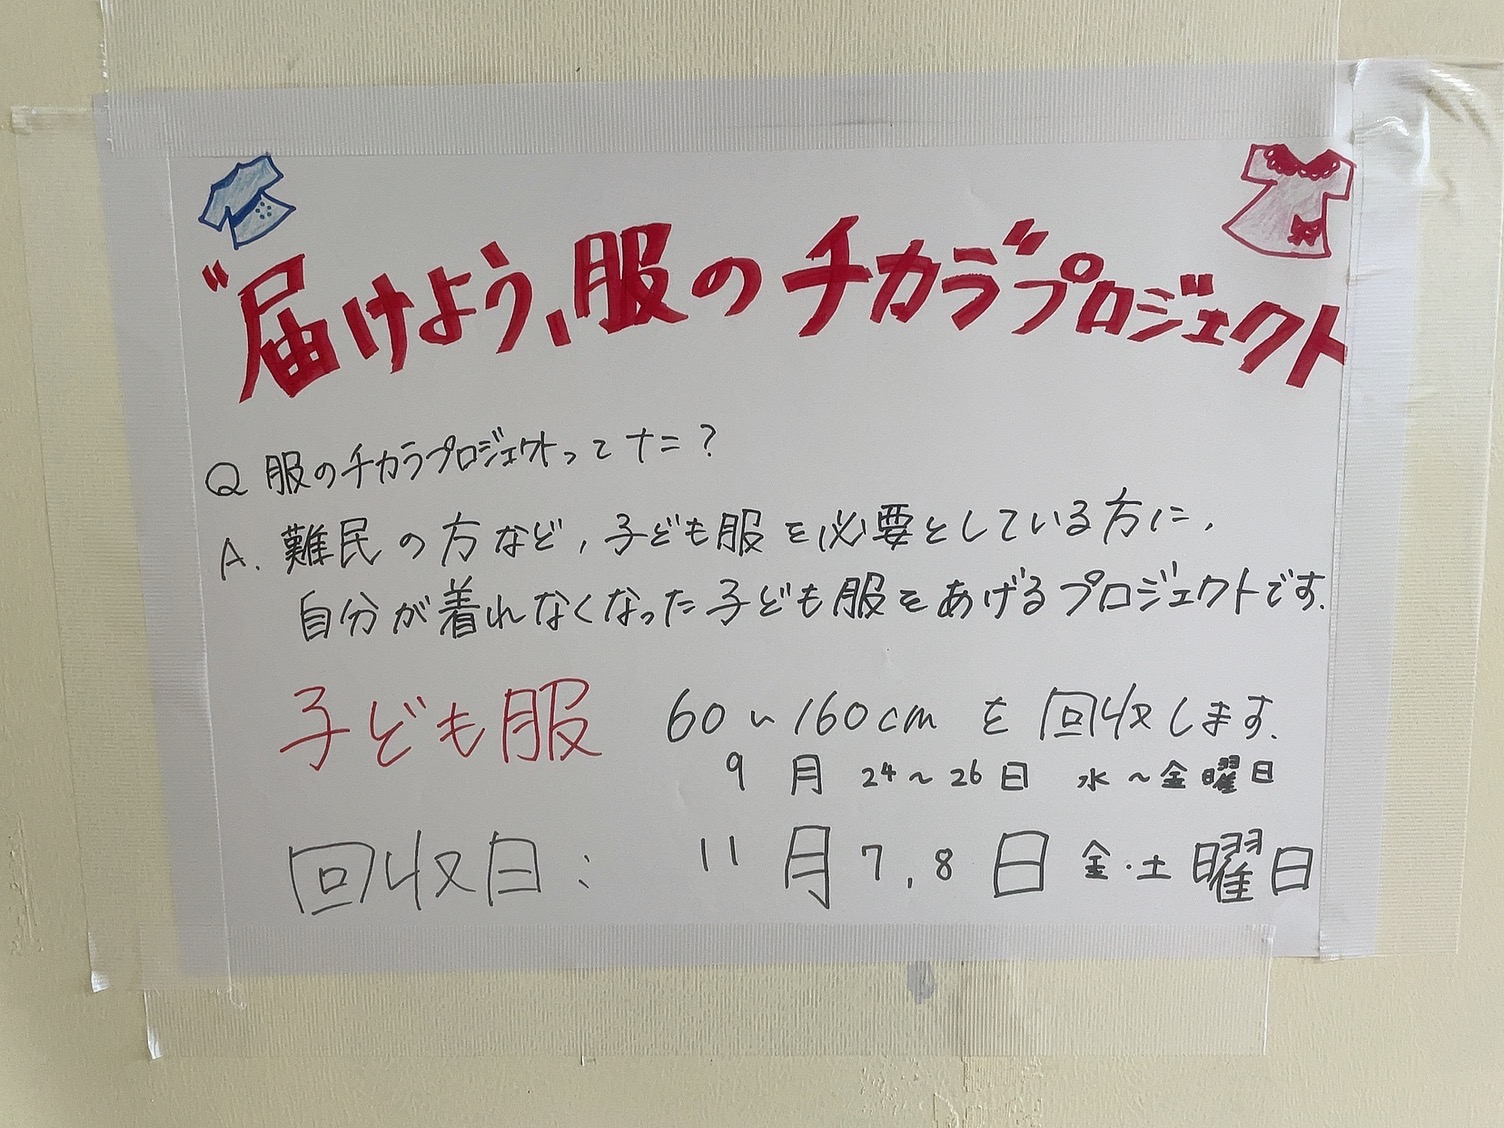 “届けよう、服のチカラ”プロジェクト
Q 服のチカラプロジェクトってナニ?
A. 難民の方など、子ども服を必要としている方に、
自分が着れなくなった子ども服をあげるプロジェクトです.
子ども服 60~160cm を回収します.
9月 24~26日 水~金曜日
回収日: 11月7,8日 金・土曜日